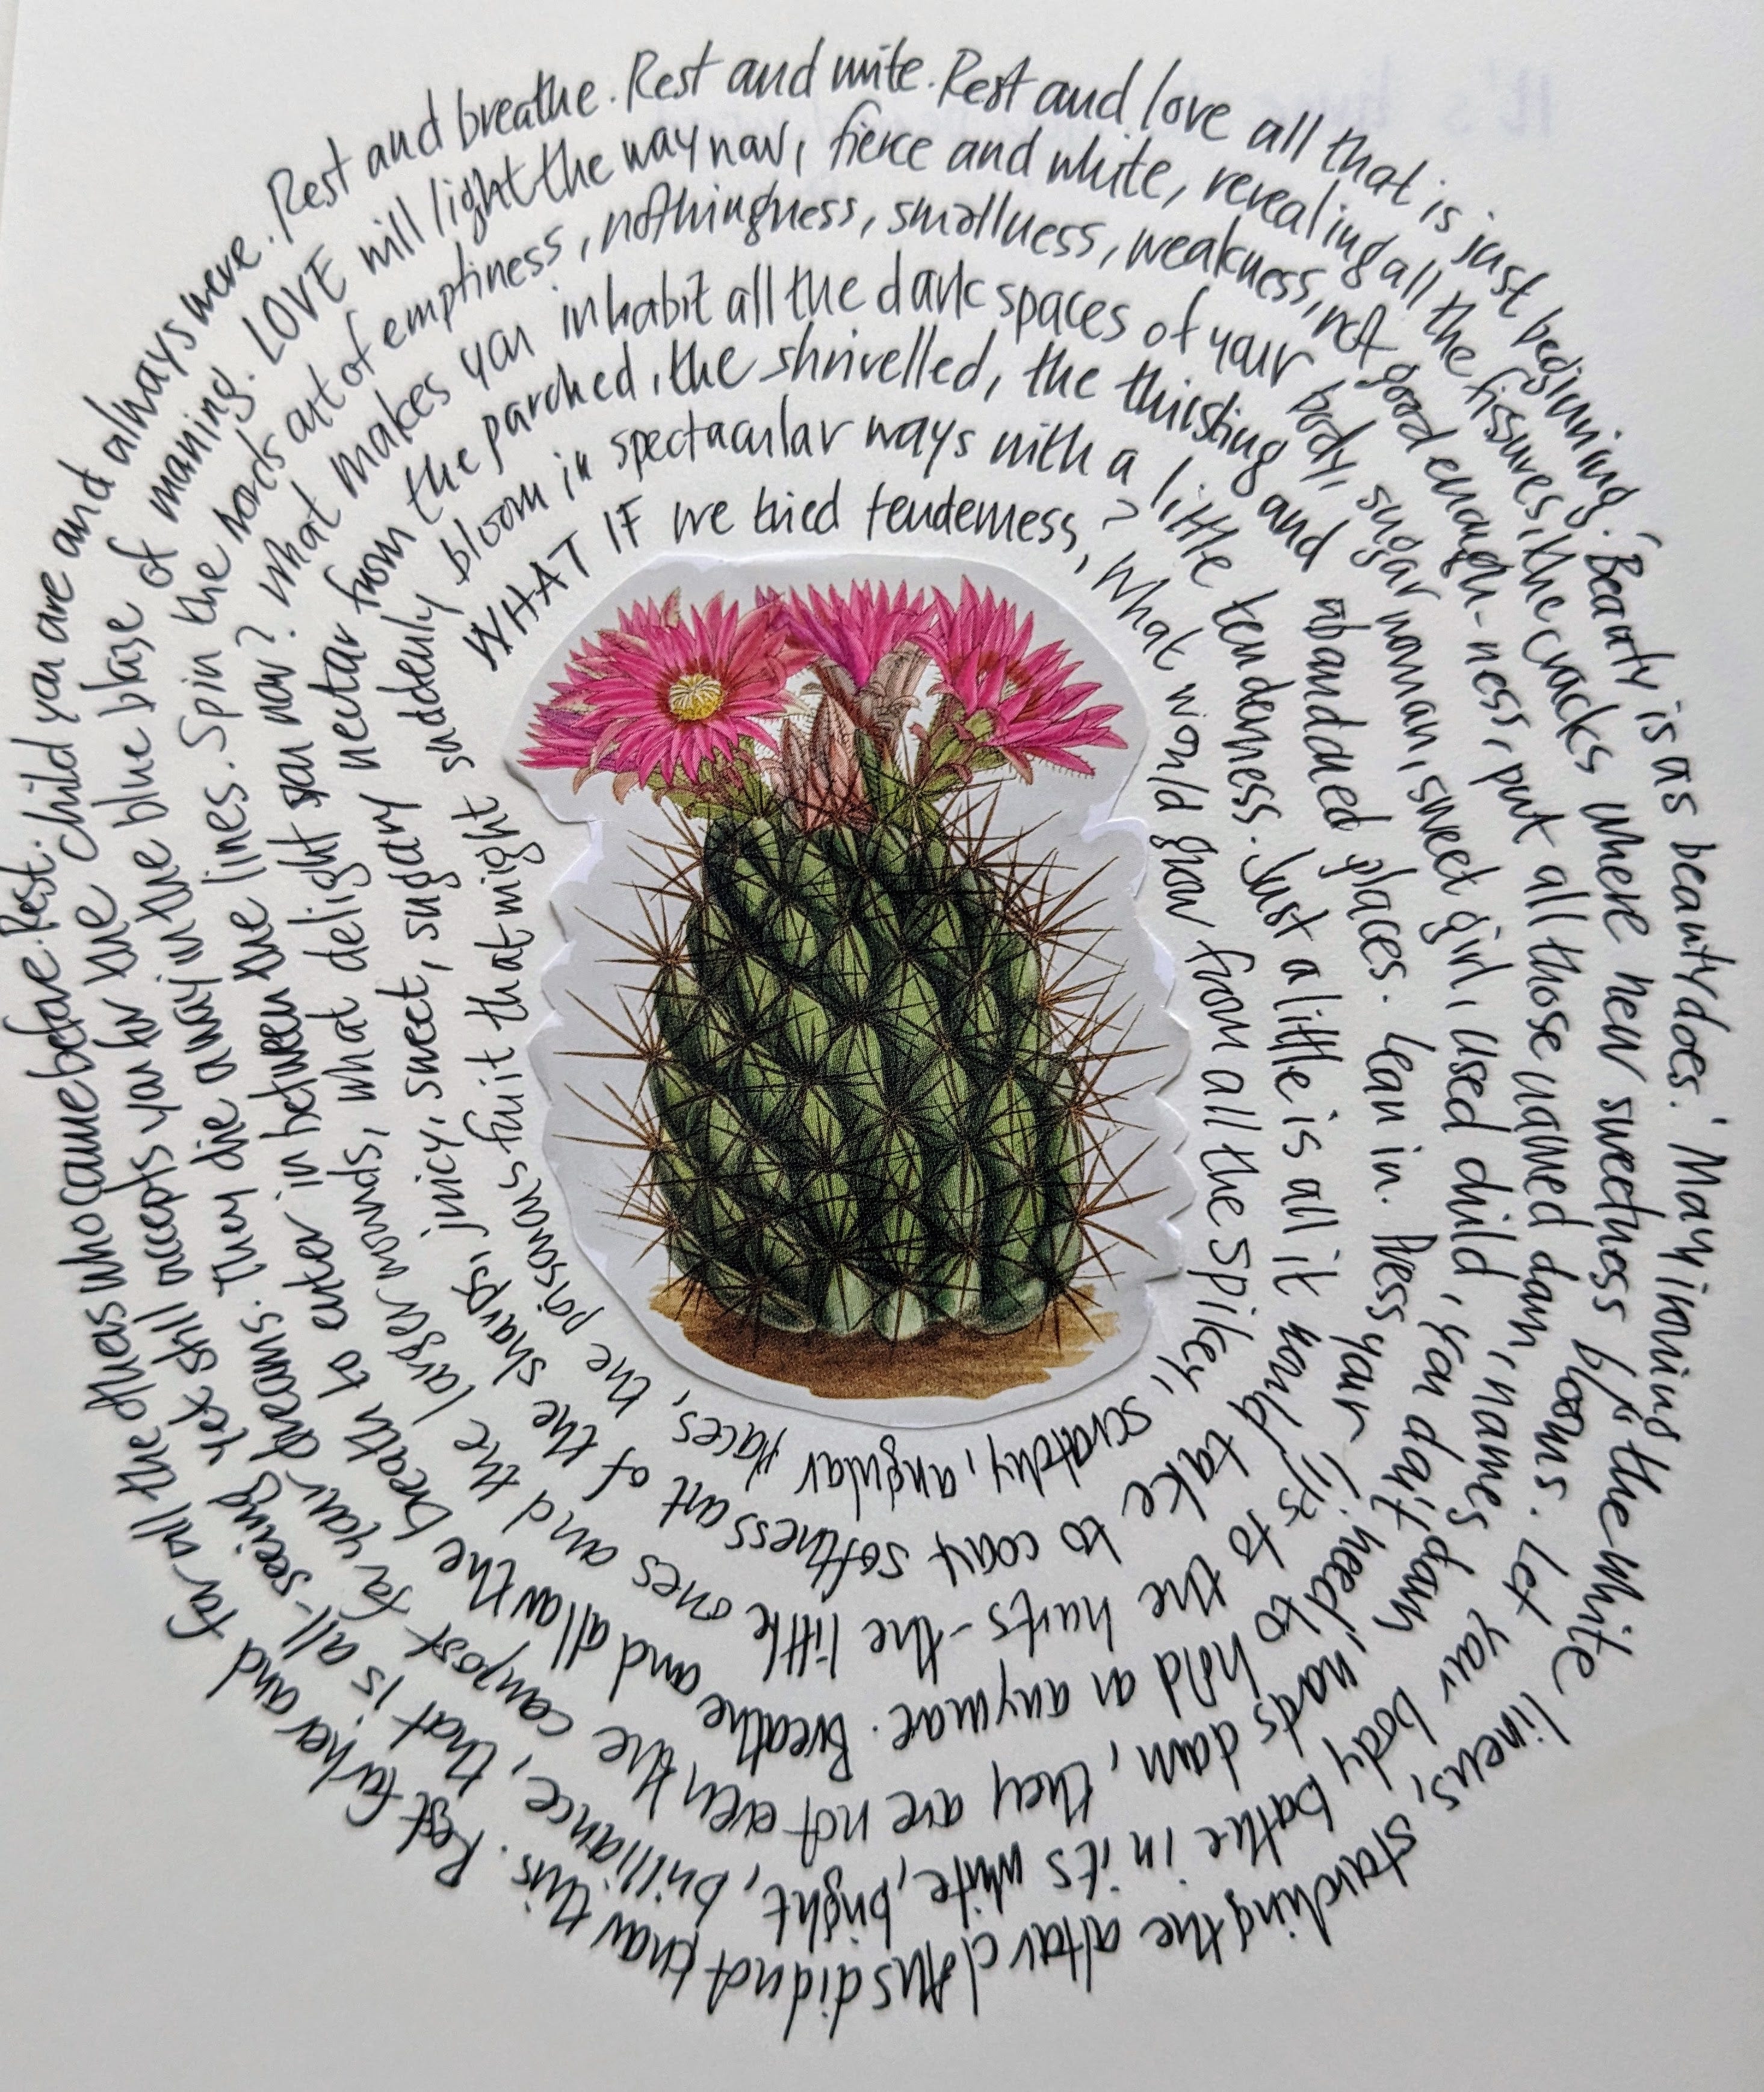 WHAT IF we tried tenderness,? What would grow from all the spikey, scratchy, angular places, the poisonous fruit that might suddenly
bloom in spectacular ways with a little tenderness. Just a little is all it would take to coax softness out of the sharps, juicy, sweet, sugary nectar
from the parched, the shrivelled, the thirsting and abandoned places. Lean in. Press your lips to the hurts - the little ones and the larger wounds, what delight you now?
what makes you inhabit all the dark spaces of your body, sugar woman, sweet girl, used child, you don't need to hold on anymore. Breathe and allow the breath to enter in between the lines.
Spin the words out of emptiness, nothingness, smallness, weakness, not good enough-ness, put all those named down, names down 'words down, they are not even the compost for your dreams. They die away in the blue blaze of morning.
LOVE will light the way now, fierce and white, revealing all the fissures, the cracks where new sweetness blooms. Let your body bathe in its white, bright, brilliance, that is all-seeing yet still accepts you for the child you are and always were.
Rest and breathe. Rest and write. Rest and love all that is just beginning. 'Beauty is as beauty does.' Mary ironing the white linens, starching the altar cloths did not know this. Rest for her and for all the others who came before. Rest.